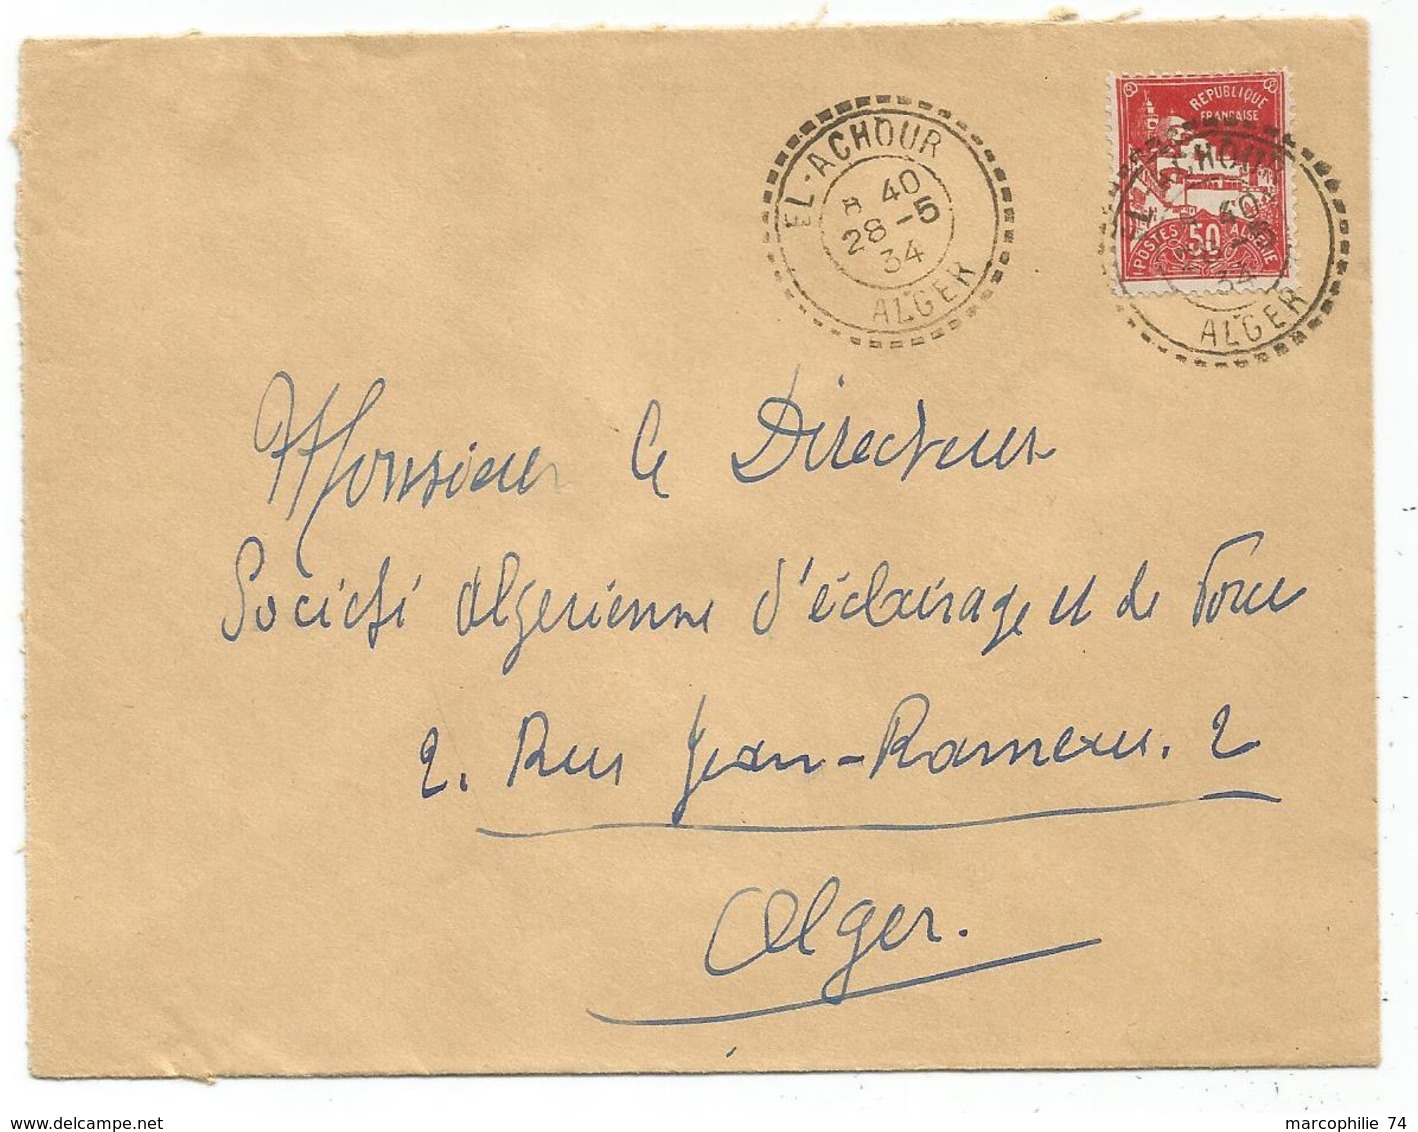 EL-ACHOUR
8 40
28-5
34
ALGER
REPUBLIQUE
FRANCAISE
POSTES 50 ALGERIE
ACHOUR
40
34
ALGER
Monsieur le Directeur
Société Algérienne d'éclairage et de Force
2. Rue Jean-Rameau. 2
Alger.
www.delcampe.net
marcophilie 74